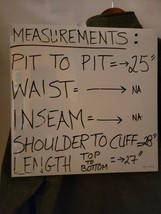 MEASUREMENTS:
PIT TO PIT=→25"
WAIST= → NA
INSEAM= → NA
SHOULDER TO CUFF=28"
LENGTH TOP TO BOTTOM =→27"